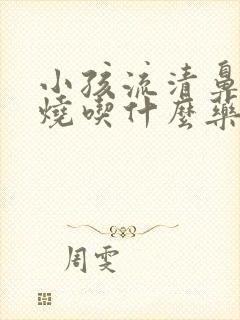 小孩流清鼻
燒喫什麼藥
周雯